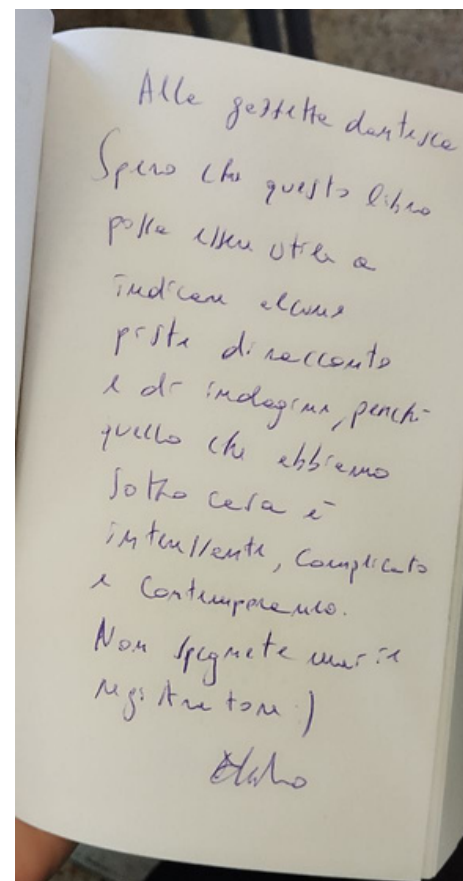 Alla gazzetta dantesca
Spero che questo libro
possa essere utile a
indicare alcune
piste di racconto
e di indagine, perché
quello che abbiamo
sotto casa è
interessante, complicato
e contemporaneo.
Non spegnete mai il
registratore :)